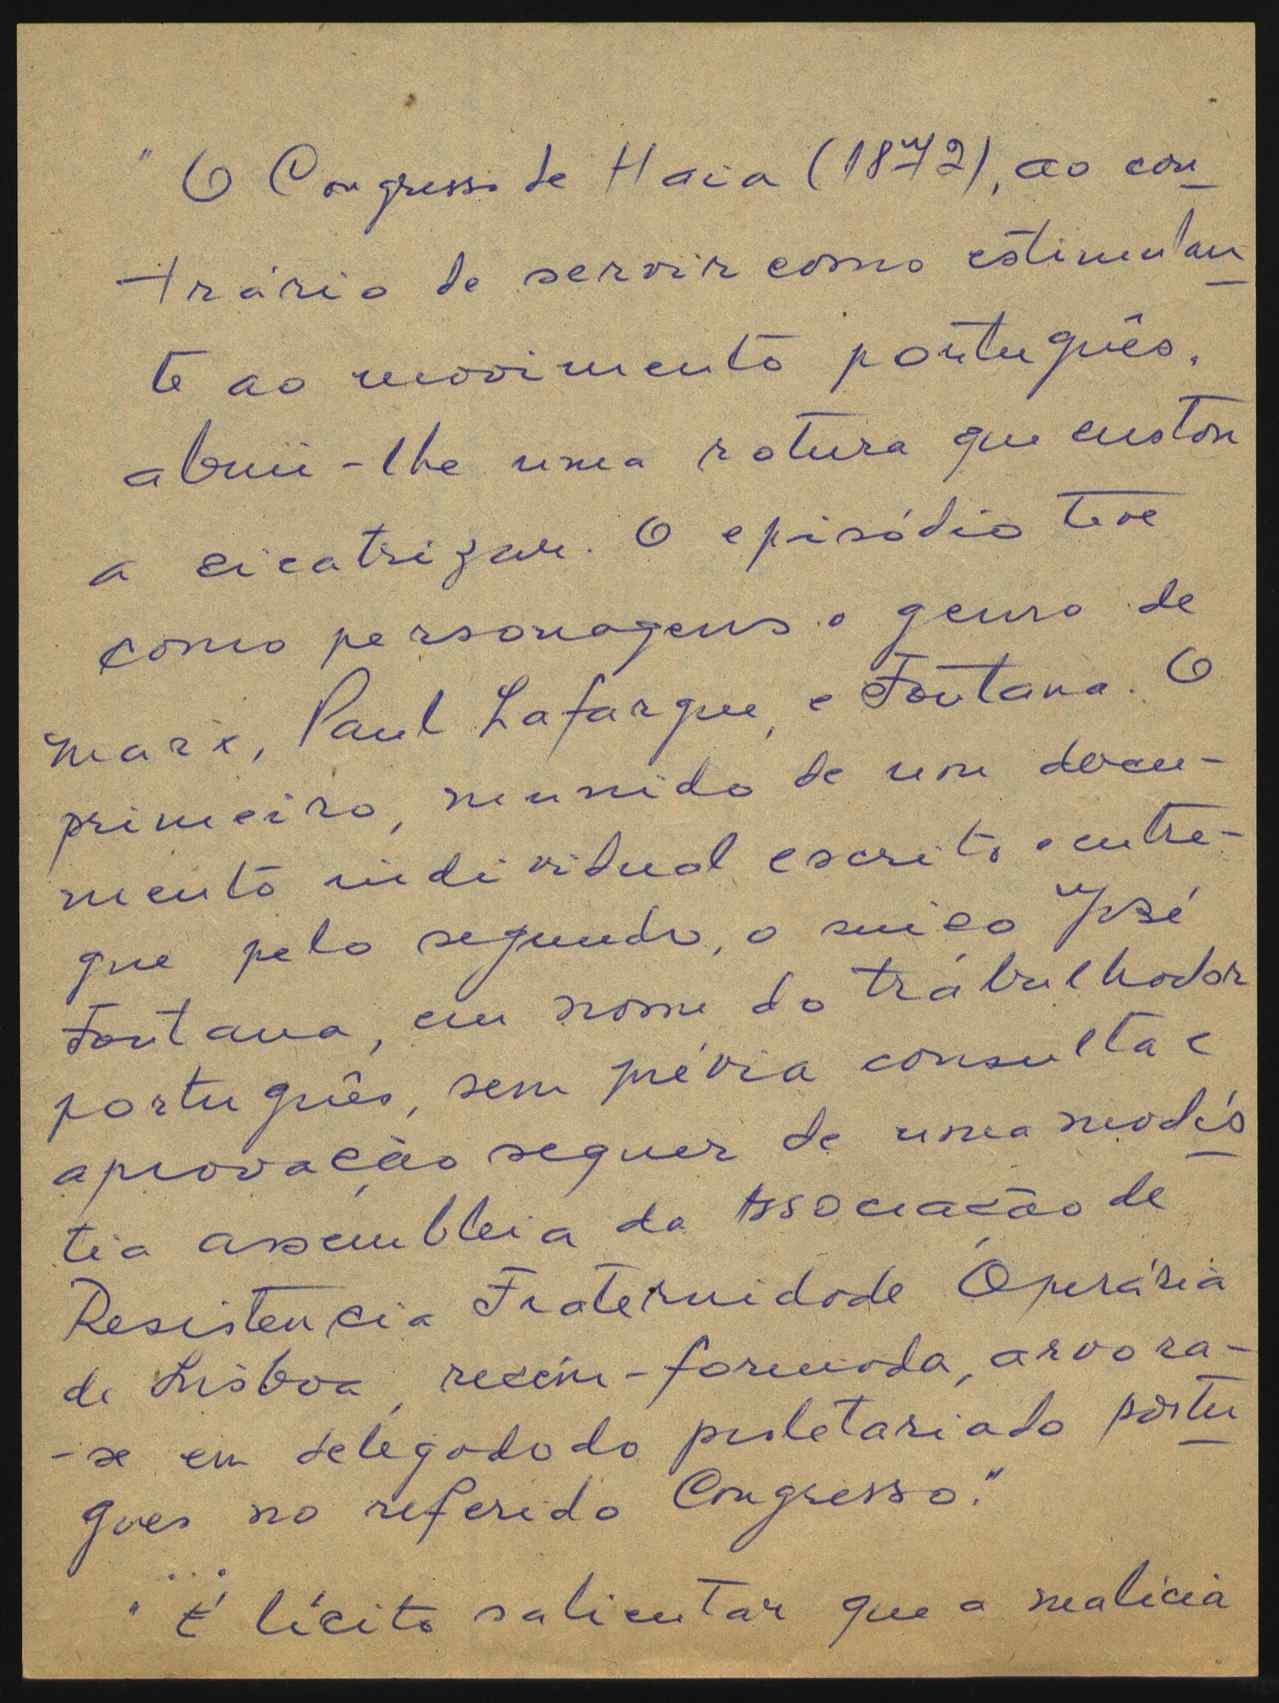 " O Congresso de Haia (1872), ao con
trário de servir como estimulan
te ao movimento português,
abriu-lhe uma rotura que custou
a cicatrizar. O episódio teve
como personagens o genro de
Marx, Paul Lafargue, e Fontana. O
primeiro, munido de um docu-
mento individual escrito e entre-
gue pelo segundo, o suiço José
Fontana, em nome do trabalhador
português, sem prévia consulta e
aprovação sequer de uma modés
tia assembleia da Associação de
Resistencia Fraternidade Operária
de Lisboa, recém-formada, arvora-
-se em delegado do proletariado portu
gues no referido Congresso."
...
" É lícito salientar que a malicia